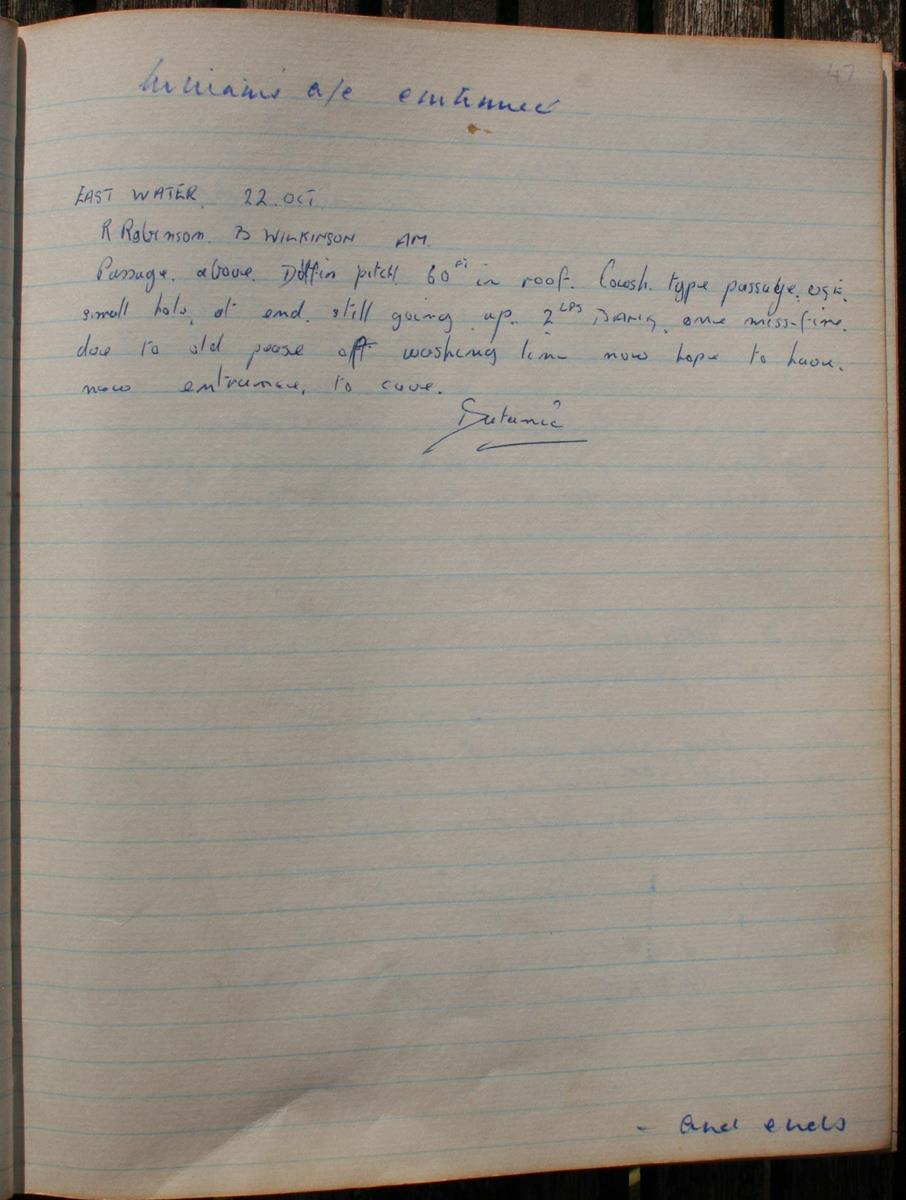 47
a/c continued
EAST WATER. 22. OCT
R Robinson. B WILKINSON AM.
Passage. above. Dolfin pitch. 60 FT in roof. type passage.
small hole, at end. still going up. 2 LBS BANG, one miss-fire.
due to old pease off washing line now hope to have.
new entrance, to cave.
- and ends